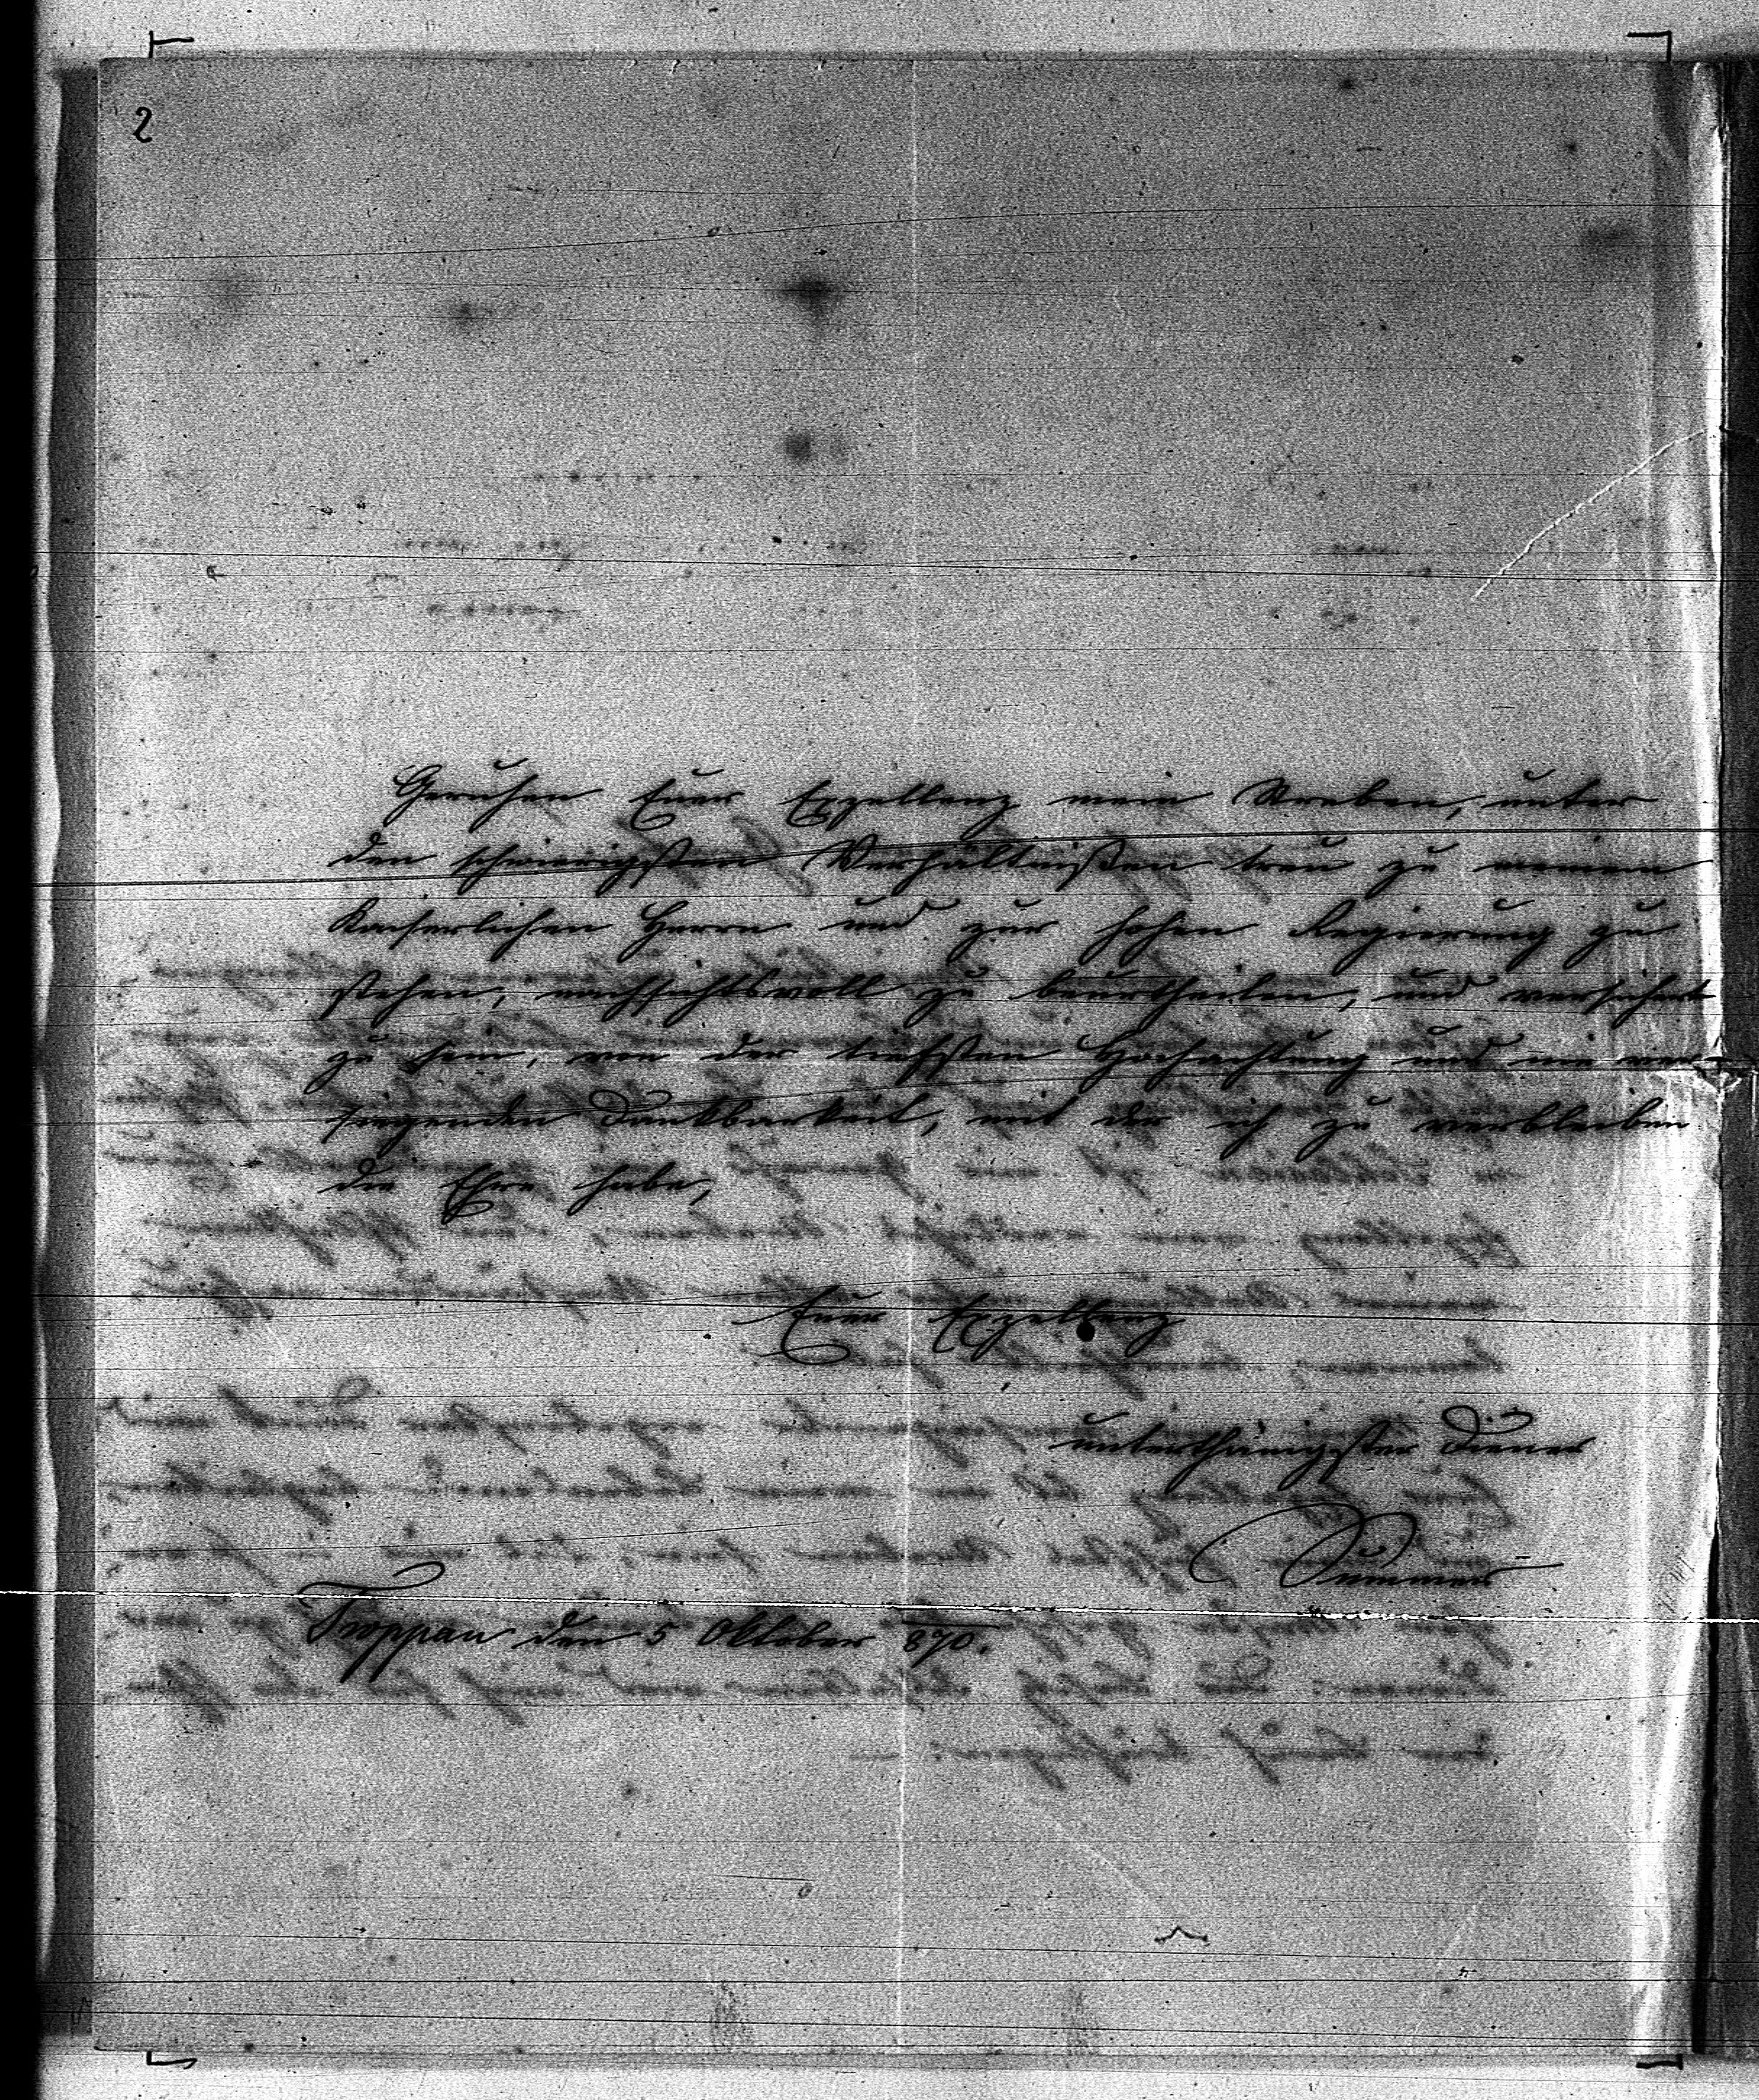 2
Geruhen Euer Exzellenz mein Streben, unter
den schwierigsten Verhältnißen treu zu meinem
Kaiserlichen Herrn und zur hohen Regierung zu
stehen, nachsichtsvoll zu beurtheilen, und versichert
zu sein, von der tiefsten Hochachtung und nie ver-
siegenden Dankbarkeit, mit der ich zu verbleiben
die Ehre habe,
Euer Exzellenz
unterthänigster Diener
Summer
Troppau den 5 Oktober 870.